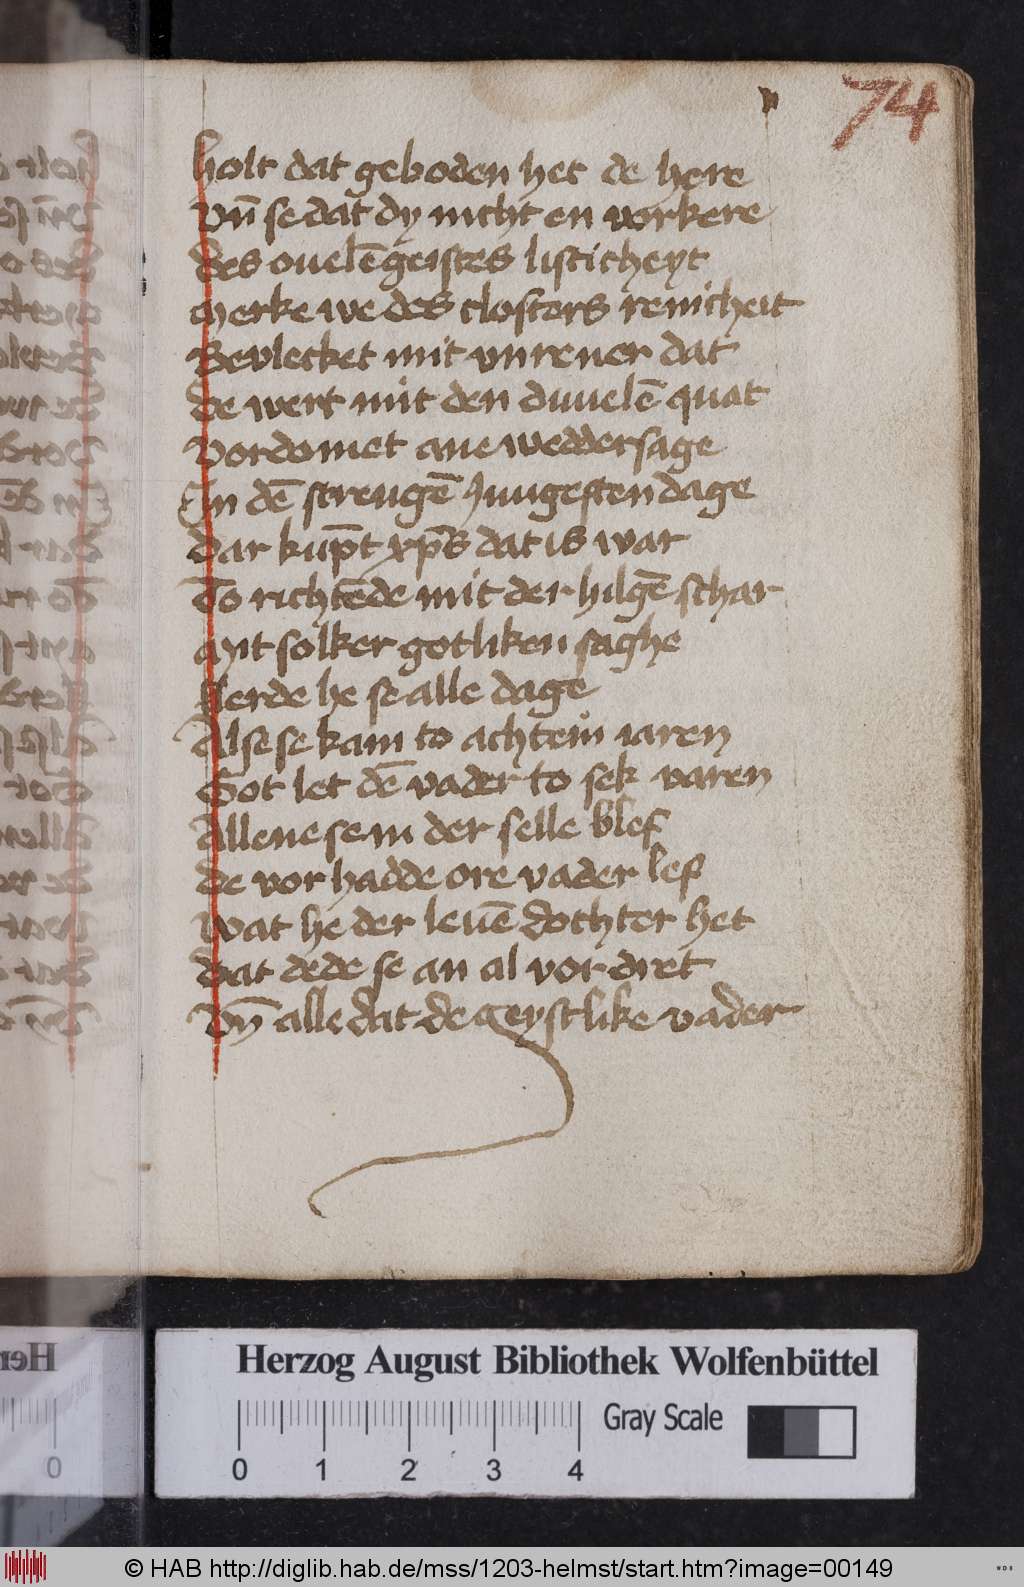 74
holt dat geboden het de here
vn̄ se dat dy nicht en vorkere
des ouelē geistes listicheyt
Merke we des closters renicheit
Bevlecket mit vnrener dat
de wert mit den duuelē quat
Vordomet ane weddersage
In dē strengē Jungesten dage
Dar kūpt xp̄s dat is war
To richtēde mit der hilgē schar
Mit solker gotliken saghe
lerde he se alle dage
Alse se kam to achtein iaren
Got let dē vader to sek varen
Allene se in der selle blef
de vor hadde ore vader lef
Wat he der leuē dochter het
Dat dede se an al vordret
Vn̄ alle dat de geystlike vader
Herzog August Bibliothek Wolfenbüttel
Gray Scale
0 1 2 3 4
© HAB http://diglib.hab.de/mss/1203-helmst/start.htm?image=00149